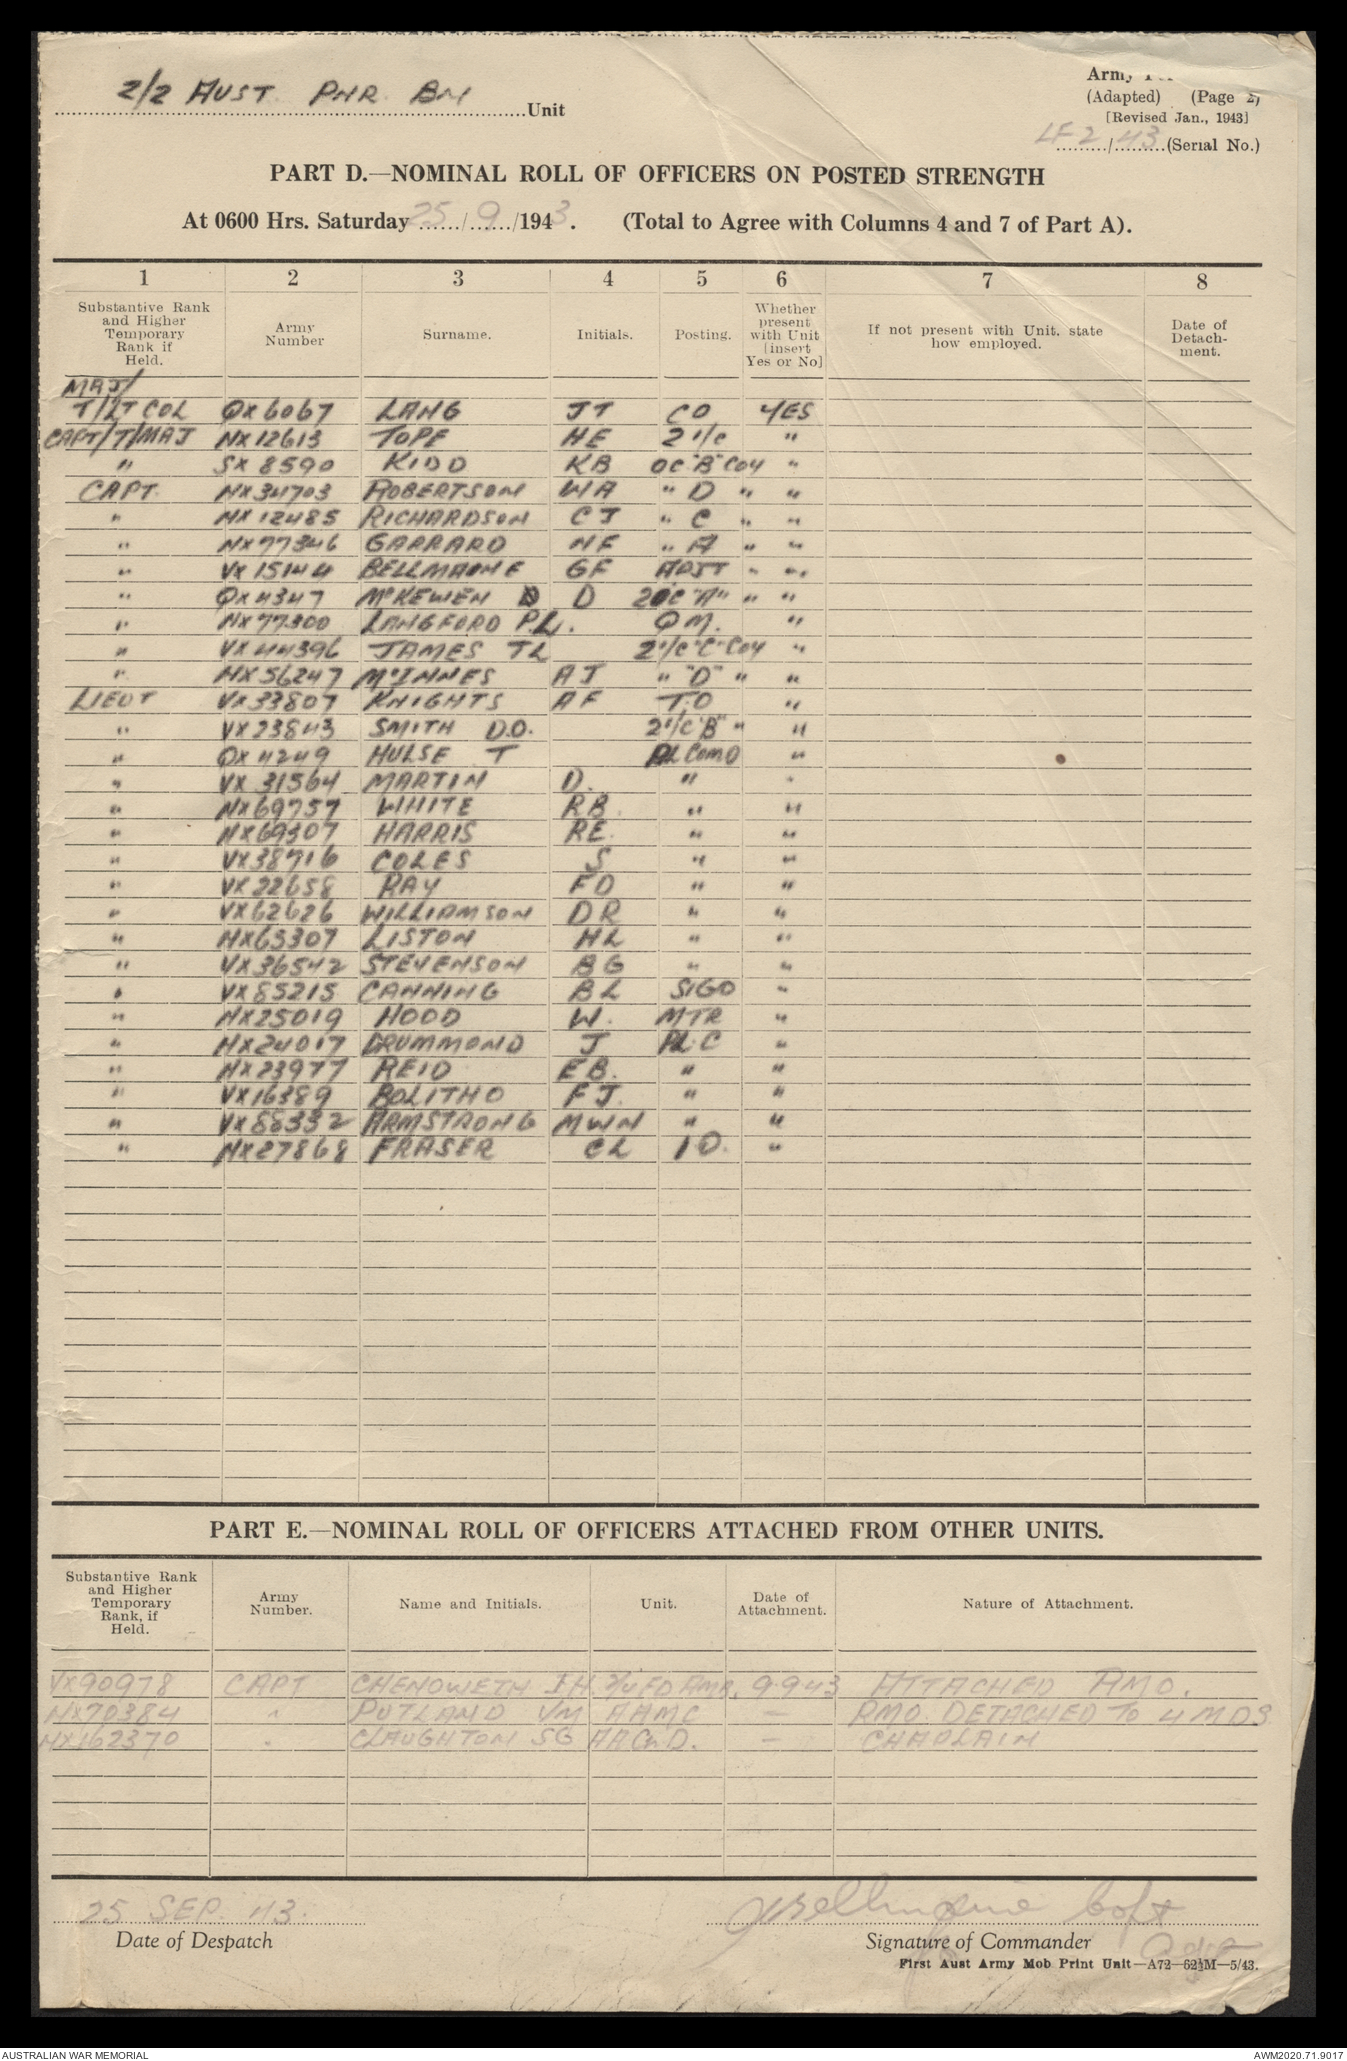 2/2 AUST. PNR. BN Unit
Army
(Adapted) (Page 2)
[Revised Jan., 1943]
LF2/43 (Serial No.)
PART D.—NOMINAL ROLL OF OFFICERS ON POSTED STRENGTH
At 0600 Hrs. Saturday 25/9/1943. (Total to Agree with Columns 4 and 7 of Part A).
1 2 3 4 5 6 7 8
Substantive Rank and Higher Temporary Rank if Held. Army Number Surname. Initials. Posting. Whether present with Unit [insert Yes or No] If not present with Unit. state how employed. Date of Detach-ment.
MAJ/
T/LT COL QX6067 LANG JT CO YES
CAPT/T/MAJ NX12613 TOPE HE 2 I/C "
" SX 8590 KIDD KB OC "B" COY "
CAPT. NX34703 ROBERTSON WA " D " "
" NX12485 RICHARDSON CJ " C " "
" NX77346 GARRARD NF " A " "
" VX15144 BELLMAINE GF ADJT " "
" QX4347 McKEWEN D "A" " "
" NX77300 LANGFORD P.L. QM. "
" VX44396 JAMES TL 2I/C "C" COY "
" NX56247 McINNES AJ " "D" " "
LIEUT VX33807 KNIGHTS AF T.O "
" VX23843 SMITH D.O. 2I/C "B" " "
" QX4249 HULSE T PL COMD "
" VX 31564 MARTIN D. " "
" NX69757 WHITE RB. " "
" NX69307 HARRIS RE. " "
" VX38716 COLES S " "
" VX22658 RAY FD " "
" VX62626 WILLIAMSON DR " "
" NX65307 LISTON HL " "
" VX36542 STEVENSON BG " "
" VX85215 CANNING BL SIGO "
" NX25019 HOOD W. MTR "
" NX24017 DRUMMOND J PL.C "
" NX23977 REID EB. " "
" VX16389 BOLITHO FJ. " "
" VX88332 ARMSTRONG MWN " "
" NX27868 FRASER CL IO. "
PART E.—NOMINAL ROLL OF OFFICERS ATTACHED FROM OTHER UNITS.
Substantive Rank and Higher Temporary Rank, if Held. Army Number. Name and Initials. Unit. Date of Attachment. Nature of Attachment.
VX90978 CAPT CHENOWETH IH. FD AMB. 9.9.43 ATTACHED RMO.
NX70384 " PUTLAND VM AAMC — RMO. DETACHED TO 4 MDS
NX162370 " CLAUGHTON SG AAChD. — CHAPLAIN
25 SEP. 43. GFBellmaine Capt
Date of Despatch Signature of Commander Adjt
First Aust Army Mob Print Unit—A72—62½M—5/43.
AUSTRALIAN WAR MEMORIAL AWM2020.71.9017